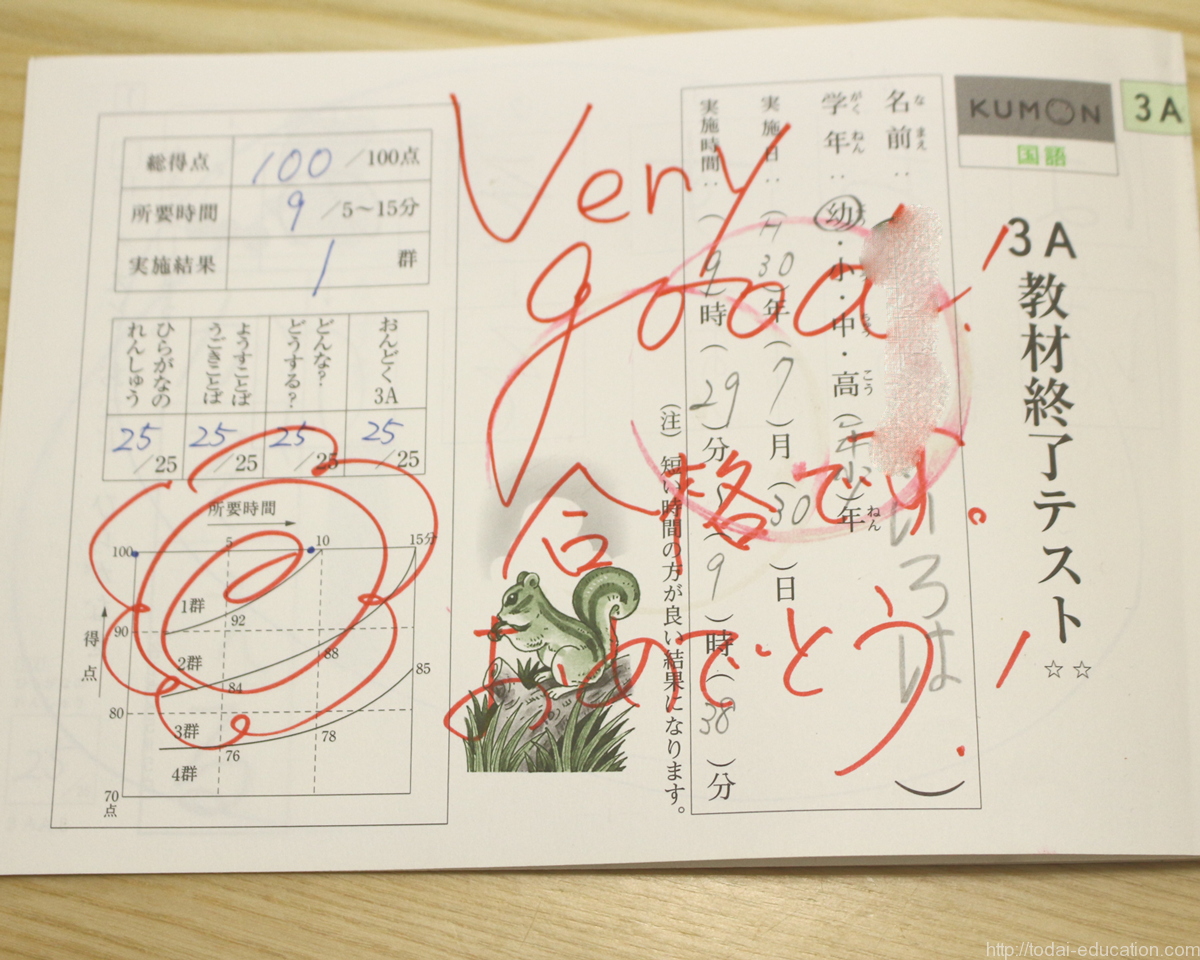 KUMON
国語
3A
3A教材終了テスト
☆☆
名前‥
いろは
学年‥幼・小・中・高(年少)年
実施日‥(H30)年(7)月(30)日
実施時間‥(9)時(29)分
(9)時(38)分
(注)短い時間の方が良い結果になります。
Very
good!
合格です。
おめでとう!
総得点 100/100点
所要時間 9/5~15分
実施結果 1群
おんどく3A
25/25
どんな?どうする?
25/25
ようすことばうごきことば
25/25
ひらがなのれんしゅう
25/25
所要時間
5 10 15分
100
90
80
70点
得点
1群
92
2群
88
84
85
3群
78
76
4群
http://todai-education.com